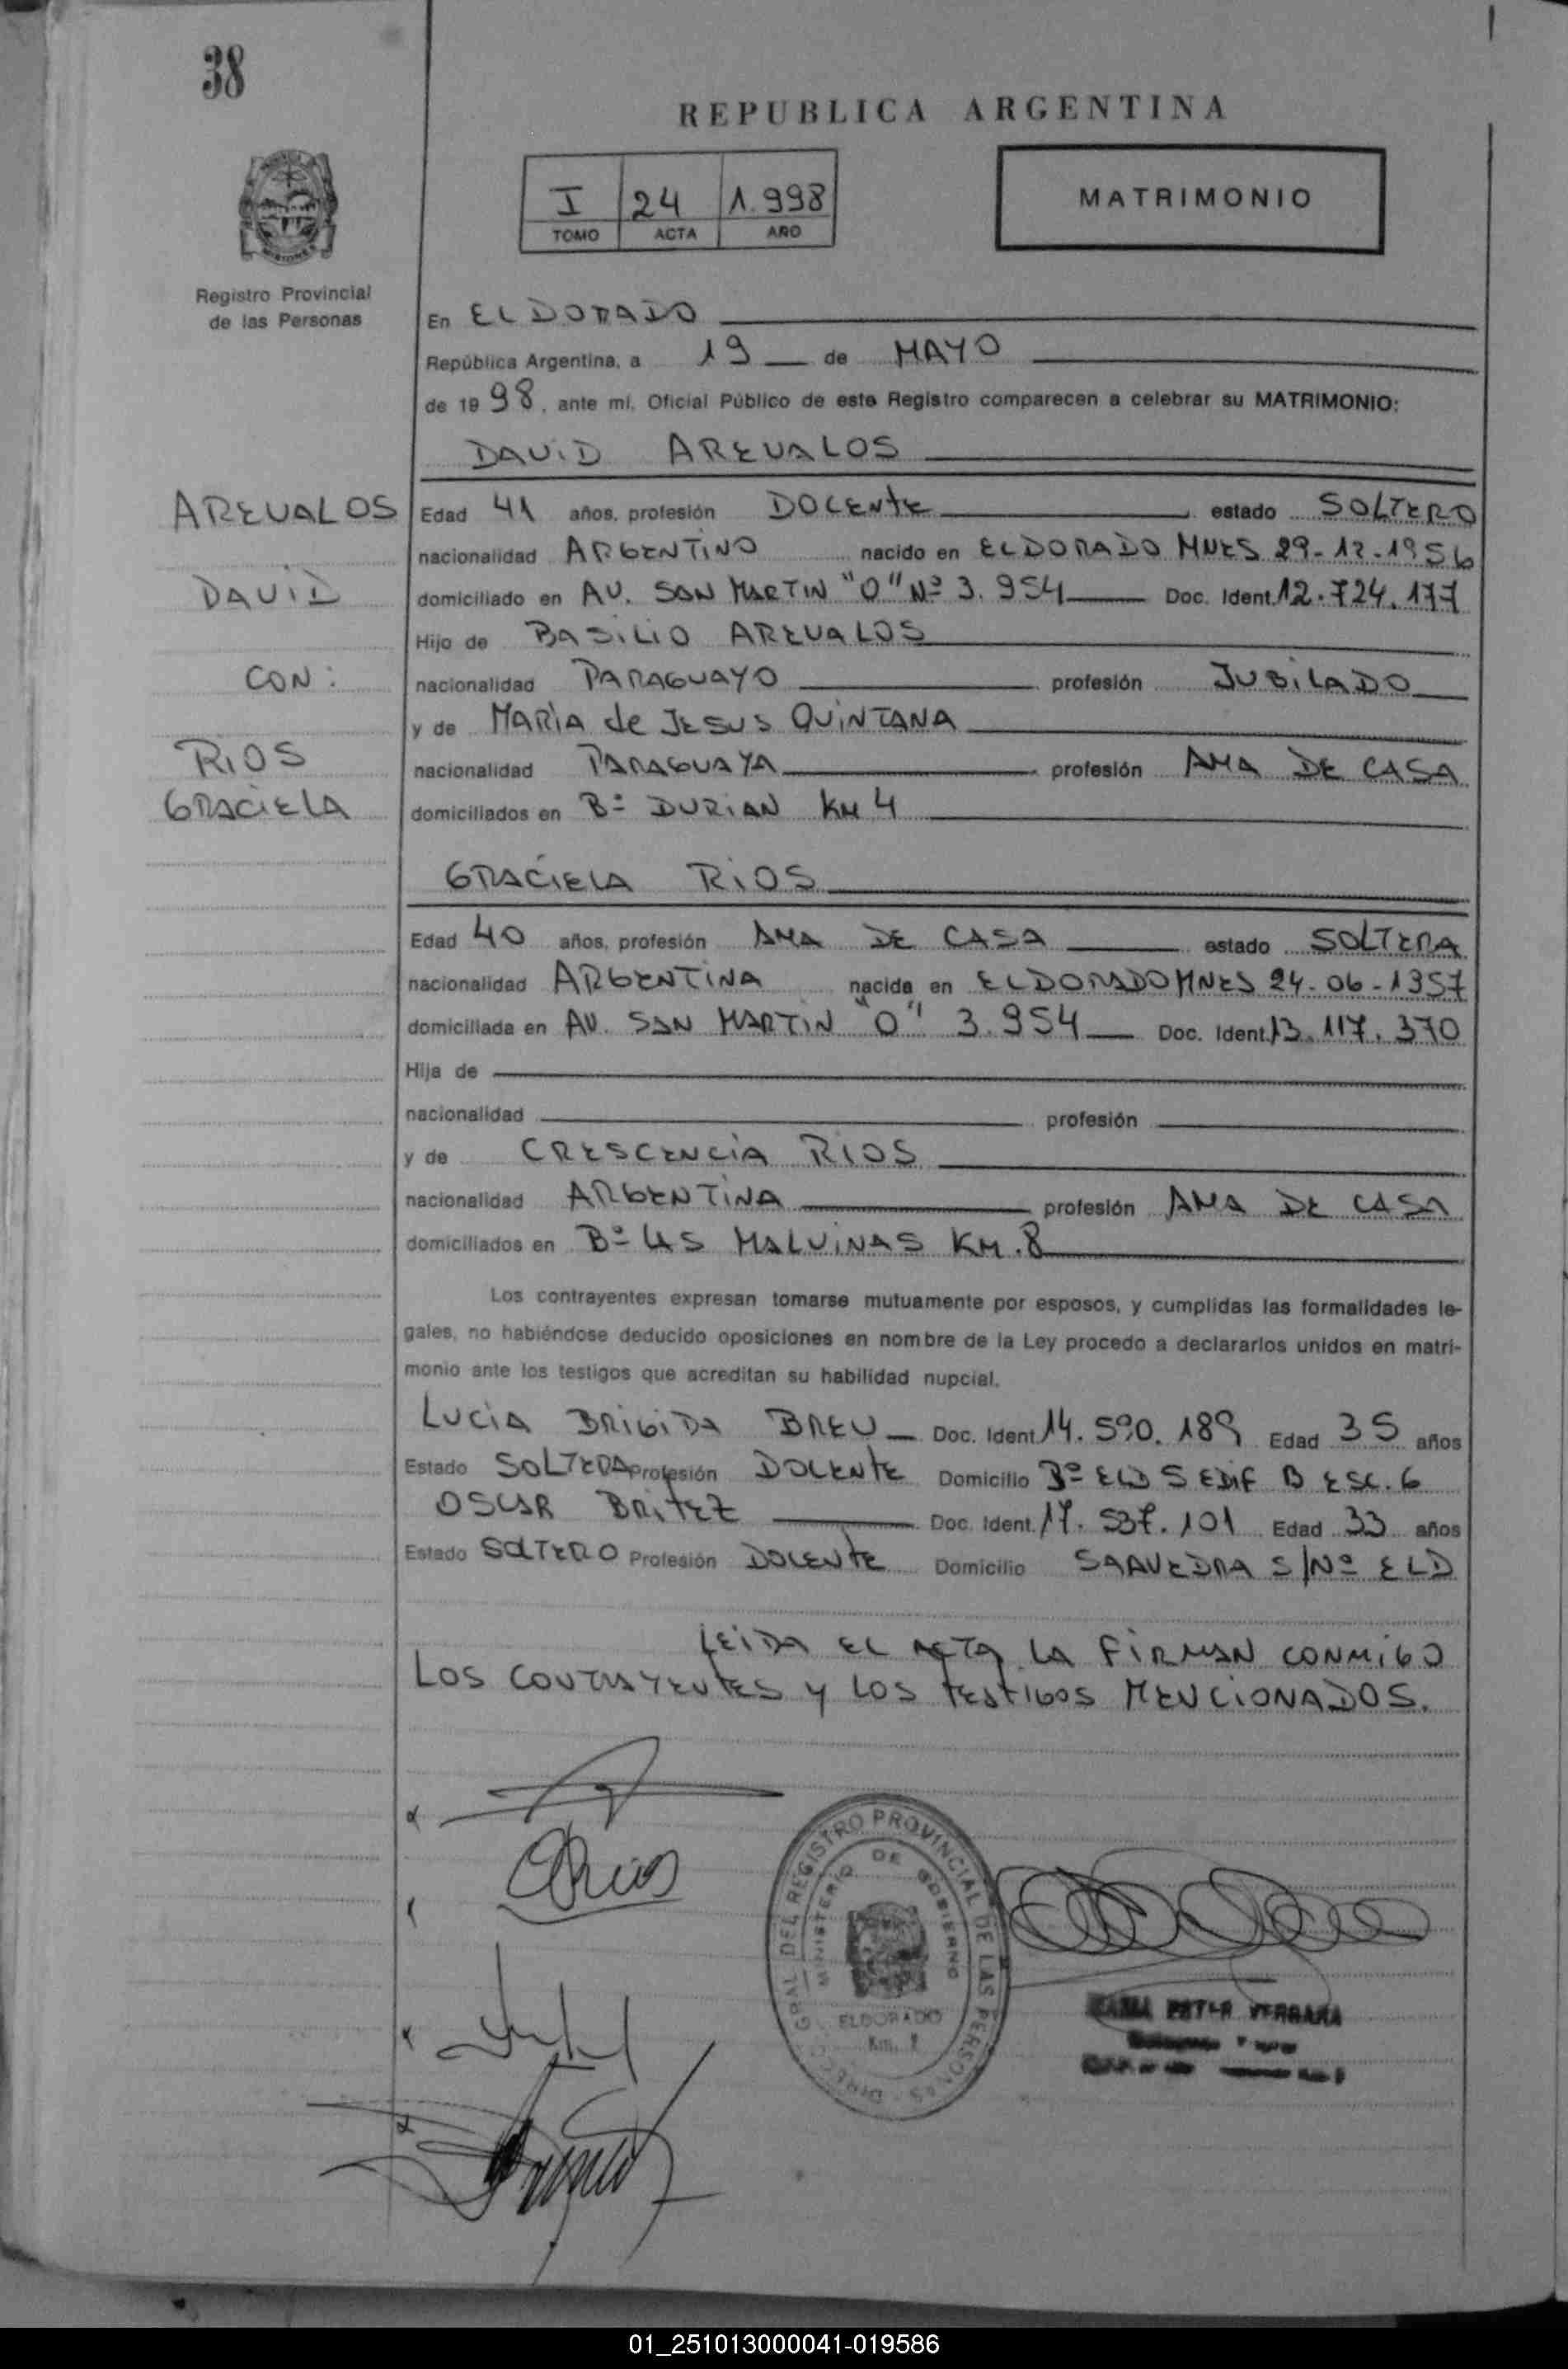 38
REPUBLICA ARGENTINA
I 24 1.998
TOMO ACTA AÑO
MATRIMONIO
MISIONES
Registro Provincial
de las Personas
En ELDORADO
República Argentina, a 19 de MAYO
de 1998, ante mí, Oficial Público de este Registro comparecen a celebrar su MATRIMONIO:
DAVID AREVALOS
AREVALOS
DAVID
CON:
RIOS
GRACIELA
Edad 41 años, profesión DOCENTE estado SOLTERO
nacionalidad ARGENTINO nacido en ELDORADO MNES 29-12-1956
domiciliado en AV. SAN MARTIN "O" Nº 3.954 Doc. Ident. 12.724.177
Hijo de BASILIO AREVALOS
nacionalidad PARAGUAYO profesión JUBILADO
y de MARIA de JESUS QUINTANA
nacionalidad PARAGUAYA profesión AMA DE CASA
domiciliados en Bº DURIAN KM 4
GRACIELA RIOS
Edad 40 años, profesión AMA DE CASA estado SOLTERA
nacionalidad ARGENTINA nacida en ELDORADO MNES 24-06-1957
domiciliada en AV. SAN MARTIN "O" 3.954 Doc. Ident. 13.117.370
Hija de
nacionalidad profesión
y de CRESCENCIA RIOS
nacionalidad ARGENTINA profesión AMA DE CASA
domiciliados en Bº LAS MALVINAS KM.8
Los contrayentes expresan tomarse mutuamente por esposos, y cumplidas las formalidades le-
gales, no habiéndose deducido oposiciones en nombre de la Ley procedo a declararlos unidos en matri-
monio ante los testigos que acreditan su habilidad nupcial.
LUCIA BRIGIDA BREU Doc. Ident. 14.590.189 Edad 35 años
Estado SOLTERA Profesión DOCENTE Domicilio Bº ELD 5 EDIF B ESC. 6
OSCAR BRITEZ Doc. Ident. 17.537.101 Edad 33 años
Estado SOLTERO Profesión DOCENTE Domicilio SAAVEDRA S/Nº ELD
LEIDA EL ACTA LA FIRMAN CONMIGO
LOS CONTRAYENTES Y LOS TESTIGOS MENCIONADOS.
GRios
DIRECC. GRAL DEL REGISTRO PROVINCIAL DE LAS PERSONAS
MINISTERIO DE GOBIERNO
ELDORADO
Km.
VERGARA
01_251013000041-019586